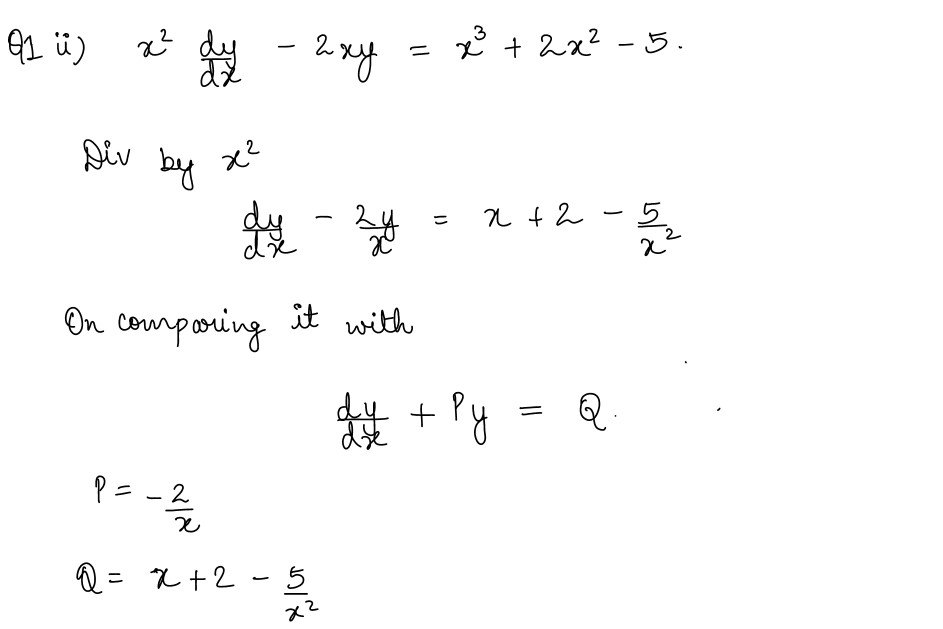 Q1 ii) x² dy/dx - 2xy = x³ + 2x² - 5.
Div by x²
dy/dx - 2y/x = x + 2 - 5/x²
On comparing it with
dy/dx + Py = Q.
P = -2/x
Q = x + 2 - 5/x²